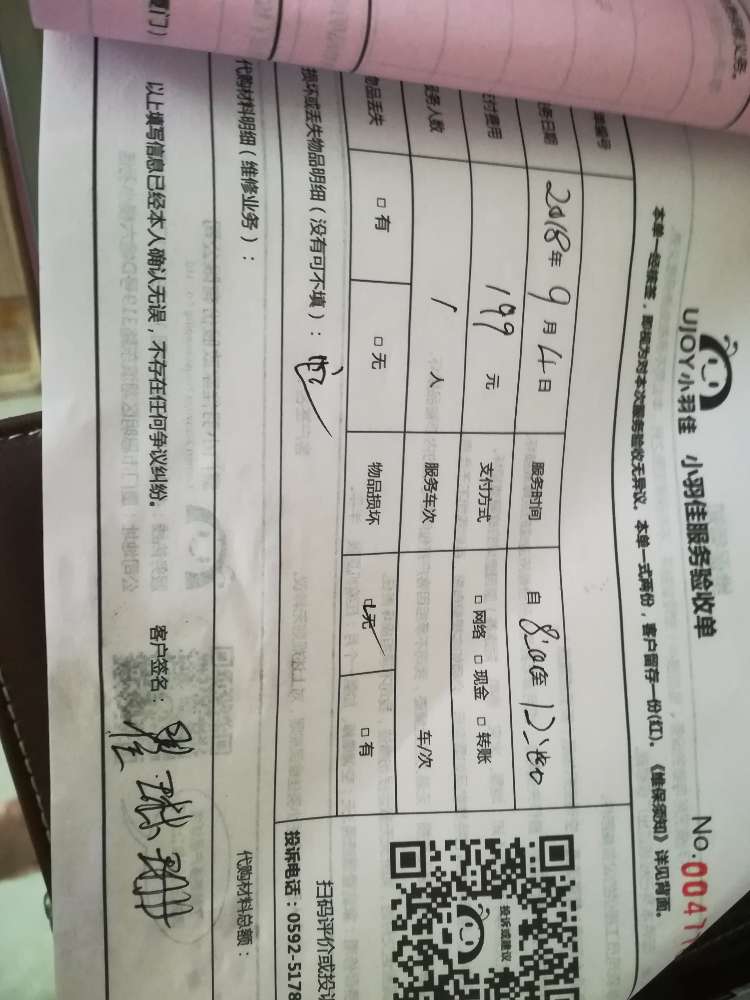 UJOY小羽佳 小羽佳服务验收单
No.0041
本单一经接签,即视为对本次服务验收无异议。本单一式两份,客户留存一份(红)。《维保须知》详见背面。
编号
务日期 2018年9月4日 服务时间 自8:00至12:00
支付费用 199元 支付方式 □网络 □现金 □转账
服务人数 1人 服务车次 车/次
物品丢失 □有 □无 物品损坏 □无 □有
损坏或丢失物品明细(没有可不填):
代购材料明细(维修业务):
代购材料总额:
以上填写信息已经本人确认无误,不存在任何争议纠纷。 客户签名:
投诉或建议
扫码评价或投诉
投诉电话:0592-5178
厦门)